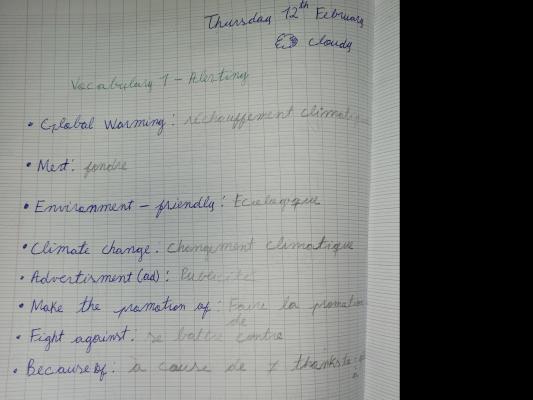 Thursday 12th February
cloudy
Vocabulary 1 - Alerting
• Global Warming : réchauffement climatique
• Melt : fondre
• Environment - friendly : Ecologique
• Climate change : changement climatique
• Advertisment (ad) : Publicité
• Make the promotion of : Faire la promotion
de
• Fight against : se battre contre
• Because of : à cause de ≠ thanks to :